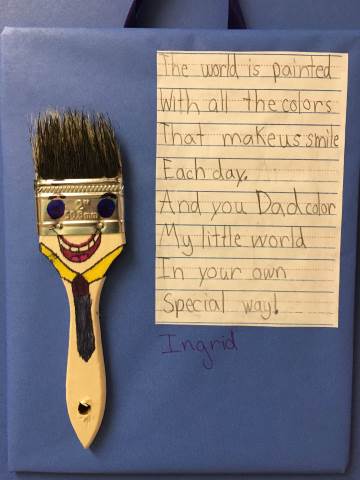 The world is painted
With all the colors
That make us smile
Each day.
And you Dad color
My little world
In your own
Special way!
Ingrid
2"
50.8mm